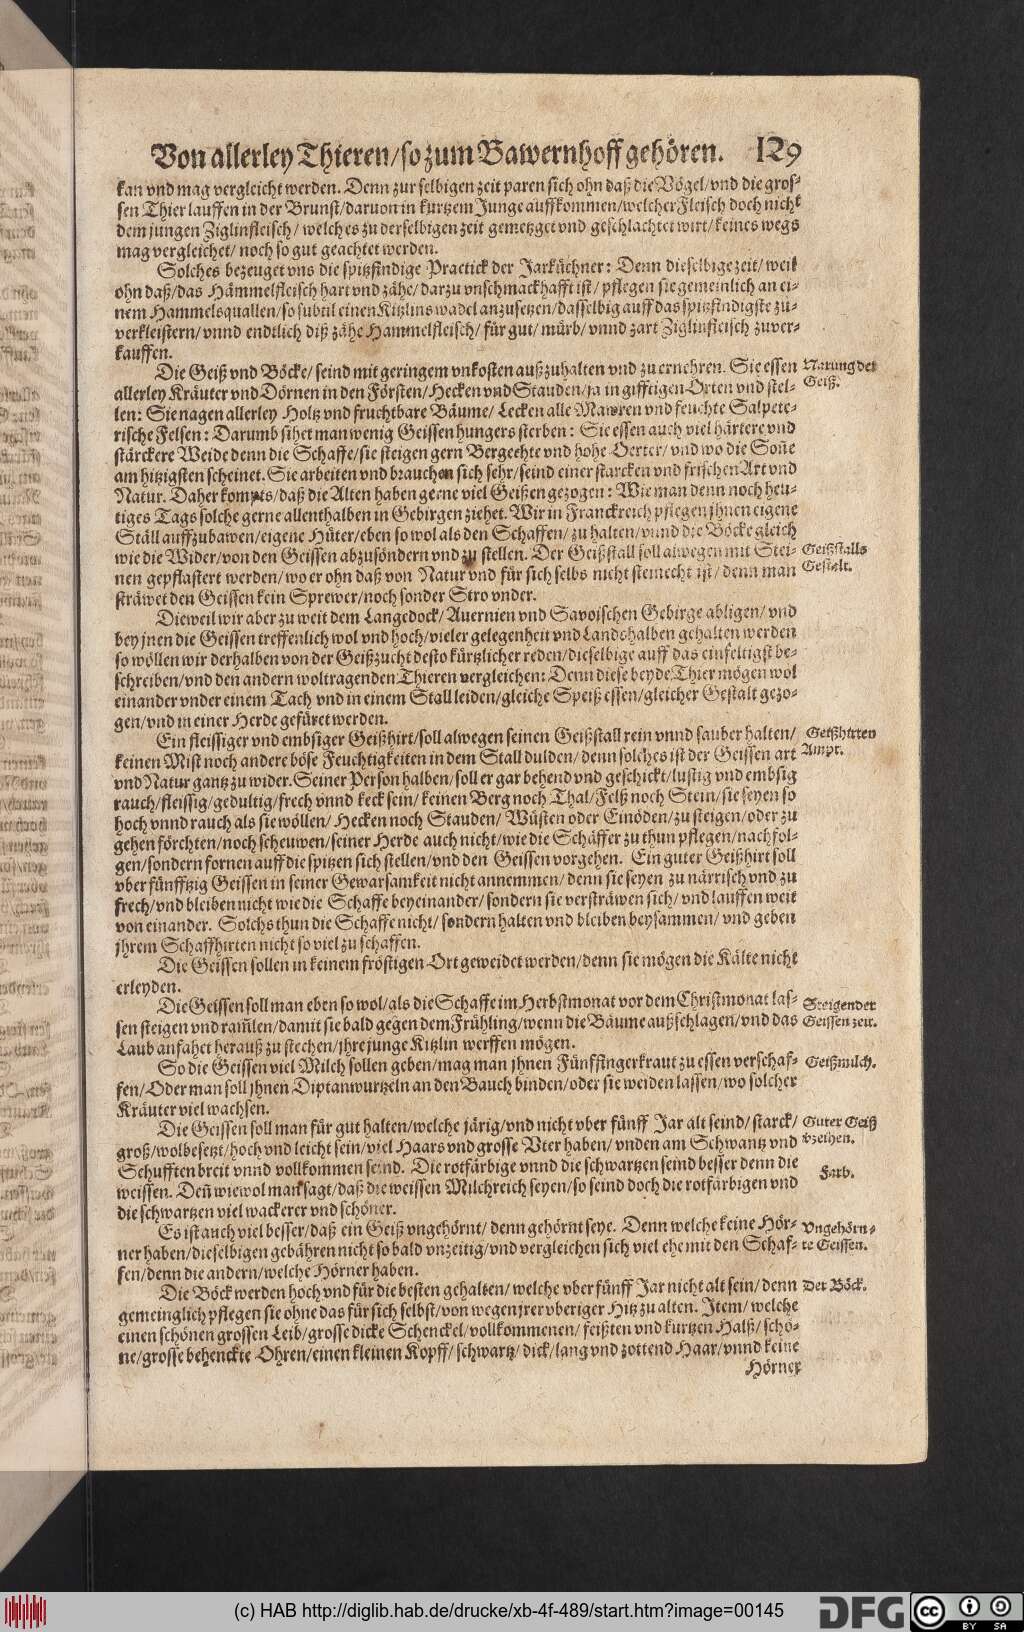 Von allerley Thieren/so zum Bawernhoff gehören. 129
kan vnd mag vergleicht werden. Denn zur selbigen zeit paren sich ohn daß die Vögel/vnd die gros-
sen Thier lauffen in der Brunst/daruon in kurtzem Junge auffkommen/welcher Fleisch doch nicht
dem jungen Ziglinfleisch/ welches zu derselbigen zeit gemetzget vnd geschlachtet wirt/ keines wegs
mag vergleichet/ noch so gut geachtet werden.
Solches bezeuget vns die spitzfindige Practick der Jarküchner: Denn dieselbige zeit/ weil
ohn daß/das Hämmelfleisch hart vnd zähe/ darzu vnschmackhafft ist/ pflegen sie gemeinlich an ei-
nem Hammelsquallen/ so subtil einen Kitzlins wadel anzusetzen/dasselbig auff das spitzfindigste zu-
verkleistern/ vnnd endtlich diß zähe Hammelfleisch/ für gut/ mürb/ vnnd zart Ziglinfleisch zuver-
kauffen.
Die Geiß vnd Böcke/ seind mit geringem vnkosten außzuhalten vnd zu ernehren. Sie essen
Narung der
Geiß.
allerley Kräuter vnd Dörnen in den Försten/Hecken vnd Stauden/ja in gifftigen Orten vnd stel-
len: Sie nagen allerley Holtz vnd fruchtbare Bäume/ Lecken alle Mawren vnd feuchte Salpete-
rische Felsen: Darumb sihet man wenig Geissen hungers sterben: Sie essen auch viel härtere vnd
stärckere Weide denn die Schaffe/sie steigen gern Bergechte vnd hohe Oerter/ vnd wo die Soñe
am hitzigsten scheinet. Sie arbeiten vnd brauchen sich sehr/seind einer starcken vnd frischen Art vnd
Natur. Daher kompts/daß die Alten haben gerne viel Geißen gezogen: Wie man denn noch heu-
tiges Tags solche gerne allenthalben in Gebirgen ziehet. Wir in Franckreich pflegen jhnen eigene
Ställ auffzubawen/eigene Hüter/eben so wol als den Schaffen/ zu halten/vnnd die Böcke gleich
wie die Wider/von den Geissen abzusöndern vnd zu stellen. Der Geißstall soll alwegen mit Stei-
Geißstalls
Gestalt.
nen gepflastert werden/wo er ohn daß von Natur vnd für sich selbs nicht steinecht ist/ denn man
sträwet den Geissen kein Sprewer/noch sonder Stro vnder.
Dieweil wir aber zu weit dem Langedock/ Auernien vnd Savoischen Gebirge abligen/ vnd
bey jnen die Geissen treffenlich wol vnd hoch/vieler gelegenheit vnd Landshalben gehalten werden
so wöllen wir derhalben von der Geißzucht desto kürtzlicher reden/dieselbige auff das einfeltigst be-
schreiben/vnd den andern woltragenden Thieren vergleichen: Denn diese beyde Thier mögen wol
einander vnder einem Tach vnd in einem Stall leiden/gleiche Speiß essen/gleicher Gestalt gezo-
gen/vnd in einer Herde gefüret werden.
Ein fleissiger vnd embsiger Geißhirt/soll alwegen seinen Geißstall rein vnnd sauber halten/
Geißhirten
Ampt.
keinen Mist noch andere böse Feuchtigkeiten in dem Stall dulden/denn solches ist der Geissen art
vnd Natur gantz zu wider. Seiner Person halben/soll er gar behend vnd geschickt/lustig vnd embsig
rauch/fleissig/gedultig/frech vnnd keck sein/ keinen Berg noch Thal/Felß noch Stein/sie seyen so
hoch vnnd rauch als sie wöllen/ Hecken noch Stauden/ Wüsten oder Einöden/zu steigen/oder zu
gehen förchten/noch scheuwen/seiner Herde auch nicht/wie die Schäffer zu thun pflegen/nachfol-
gen/sondern fornen auff die spitzen sich stellen/vnd den Geissen vorgehen. Ein guter Geißhirt soll
vber fünfftzig Geissen in seiner Gewarsamkeit nicht annemmen/ denn sie seyen zu närrisch vnd zu
frech/vnd bleiben nicht wie die Schaffe beyeinander/sondern sie versträwen sich/vnd lauffen weit
von einander. Solchs thun die Schaffe nicht/ sondern halten vnd bleiben beysammen/ vnd geben
jhrem Schaffhirten nicht so viel zu schaffen.
Die Geissen sollen in keinem fröstigen Ort geweidet werden/denn sie mögen die Kälte nicht
erleyden.
Die Geissen soll man eben so wol/als die Schaffe im Herbstmonat vor dem Christmonat las-
Steigender
Geissen zeit.
sen steigen vnd ram̃len/damit sie bald gegen dem Frühling/wenn die Bäume außschlagen/vnd das
Laub anfahet herauß zu stechen/jhre junge Kitzlin werffen mögen.
So die Geissen viel Milch sollen geben/mag man jhnen Fünffingerkraut zu essen verschaf-
Geißmilch.
fen/Oder man soll jhnen Diptanwurtzeln an den Bauch binden/oder sie weiden lassen/wo solcher
Kräuter viel wachsen.
Die Geissen soll man für gut halten/welche järig/vnd nicht vber fünff Jar alt seind/ starck/
Guter Geiß
vzeihen.
groß/wolbesetzt/hoch vnd leicht sein/viel Haars vnd grosse Vter haben/ vnden am Schwantz vnd
Schufften breit vnnd vollkommen seind. Die rotfärbige vnnd die schwartzen seind besser denn die
Farb.
weissen. Deñ wiewol man sagt/daß die weissen Milchreich seyen/so seind doch die rotfärbigen vnd
die schwartzen viel wackerer vnd schöner.
Es ist auch viel besser/daß ein Geiß vngehörnt/ denn gehörnt seye. Denn welche keine Hör-
Vngehörn-
te Geissen.
ner haben/dieselbigen gebähren nicht so bald vnzeitig/vnd vergleichen sich viel ehe mit den Schaf-
fen/denn die andern/welche Hörner haben.
Die Böck werden hoch vnd für die besten gehalten/ welche vber fünff Jar nicht alt sein/ denn
Der Böck.
gemeinglich pflegen sie ohne das für sich selbst/von wegen jrer vberiger Hitz zu alten. Item/ welche
einen schönen grossen Leib/grosse dicke Schenckel/vollkommenen/ feißten vnd kurtzen Halß/ schö-
ne/grosse behenckte Ohren/einen kleinen Kopff/ schwartz/ dick/lang vnd zottend Haar/vnnd keine
Hörner
(c) HAB http://diglib.hab.de/drucke/xb-4f-489/start.htm?image=00145
DFG
cc
BY SA